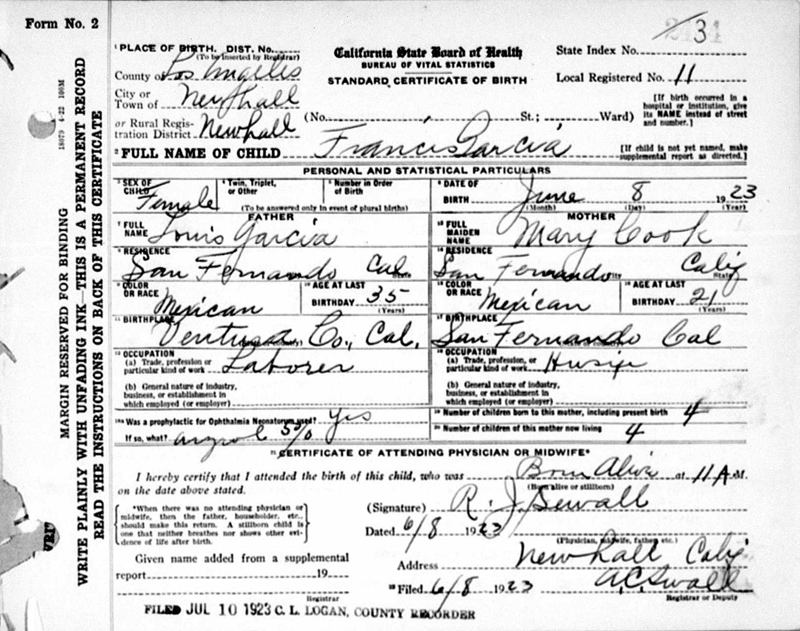 Form No. 2
31
¹ PLACE OF BIRTH. DIST. No.
(To be inserted by Registrar)
California State Board of Health
State Index No.
BUREAU OF VITAL STATISTICS
County of Los Angeles
STANDARD CERTIFICATE OF BIRTH
Local Registered No. 11
City or
Town of Newhall
[If birth occurred in a hospital or institution, give its NAME instead of street and number.]
or Rural Regis-
tration District Newhall
(No. St.; Ward)
² FULL NAME OF CHILD Francis Garcia
[If child is not yet named, make supplemental report as directed.]
PERSONAL AND STATISTICAL PARTICULARS
³ SEX OF CHILD Female
⁴ Twin, Triplet, or Other
⁵ Number in Order of Birth
(To be answered only in event of plural births)
⁶ DATE OF BIRTH June 8 1923
(Month) (Day) (Year)
FATHER
MOTHER
⁷ FULL NAME Louis Garcia
FULL MAIDEN NAME Mary Cook
⁸ RESIDENCE San Fernando Cal
State
RESIDENCE San Fernando Calif
City State
⁹ COLOR OR RACE Mexican
¹⁰ AGE AT LAST BIRTHDAY 35
(Years)
COLOR OR RACE Mexican
AGE AT LAST BIRTHDAY 21
(Years)
¹¹ BIRTHPLACE Ventura Co., Cal.
BIRTHPLACE San Fernando Cal
¹² OCCUPATION
(a) Trade, profession or particular kind of work Laborer
(b) General nature of industry, business, or establishment in which employed (or employer)
OCCUPATION
(a) Trade, profession or particular kind of work
(b) General nature of industry, business, or establishment in which employed (or employer)
Was a prophylactic for Ophthalmia Neonatorum used? Yes
If so, what? argyrol 5%
Number of children born to this mother, including present birth 4
Number of children of this mother now living 4
CERTIFICATE OF ATTENDING PHYSICIAN OR MIDWIFE*
I hereby certify that I attended the birth of this child, who was Born Alive at 11 A.M.
on the date above stated.
(Born alive or stillborn)
*When there was no attending physician or midwife, then the father, householder, etc., should make this return. A stillborn child is one that neither breathes nor shows other evidence of life after birth.
(Signature) R. J. Sewall
Dated 6/8 1923
(Physician, midwife, father, etc.)
Given name added from a supplemental
report 19
Registrar
Address Newhall Calif
Filed 6/8 1923
Registrar or Deputy
FILED JUL 10 1923 C. L. LOGAN, COUNTY RECORDER
18079 4-22 100M
MARGIN RESERVED FOR BINDING
WRITE PLAINLY WITH UNFADING INK—THIS IS A PERMANENT RECORD
READ THE INSTRUCTIONS ON BACK OF THIS CERTIFICATE